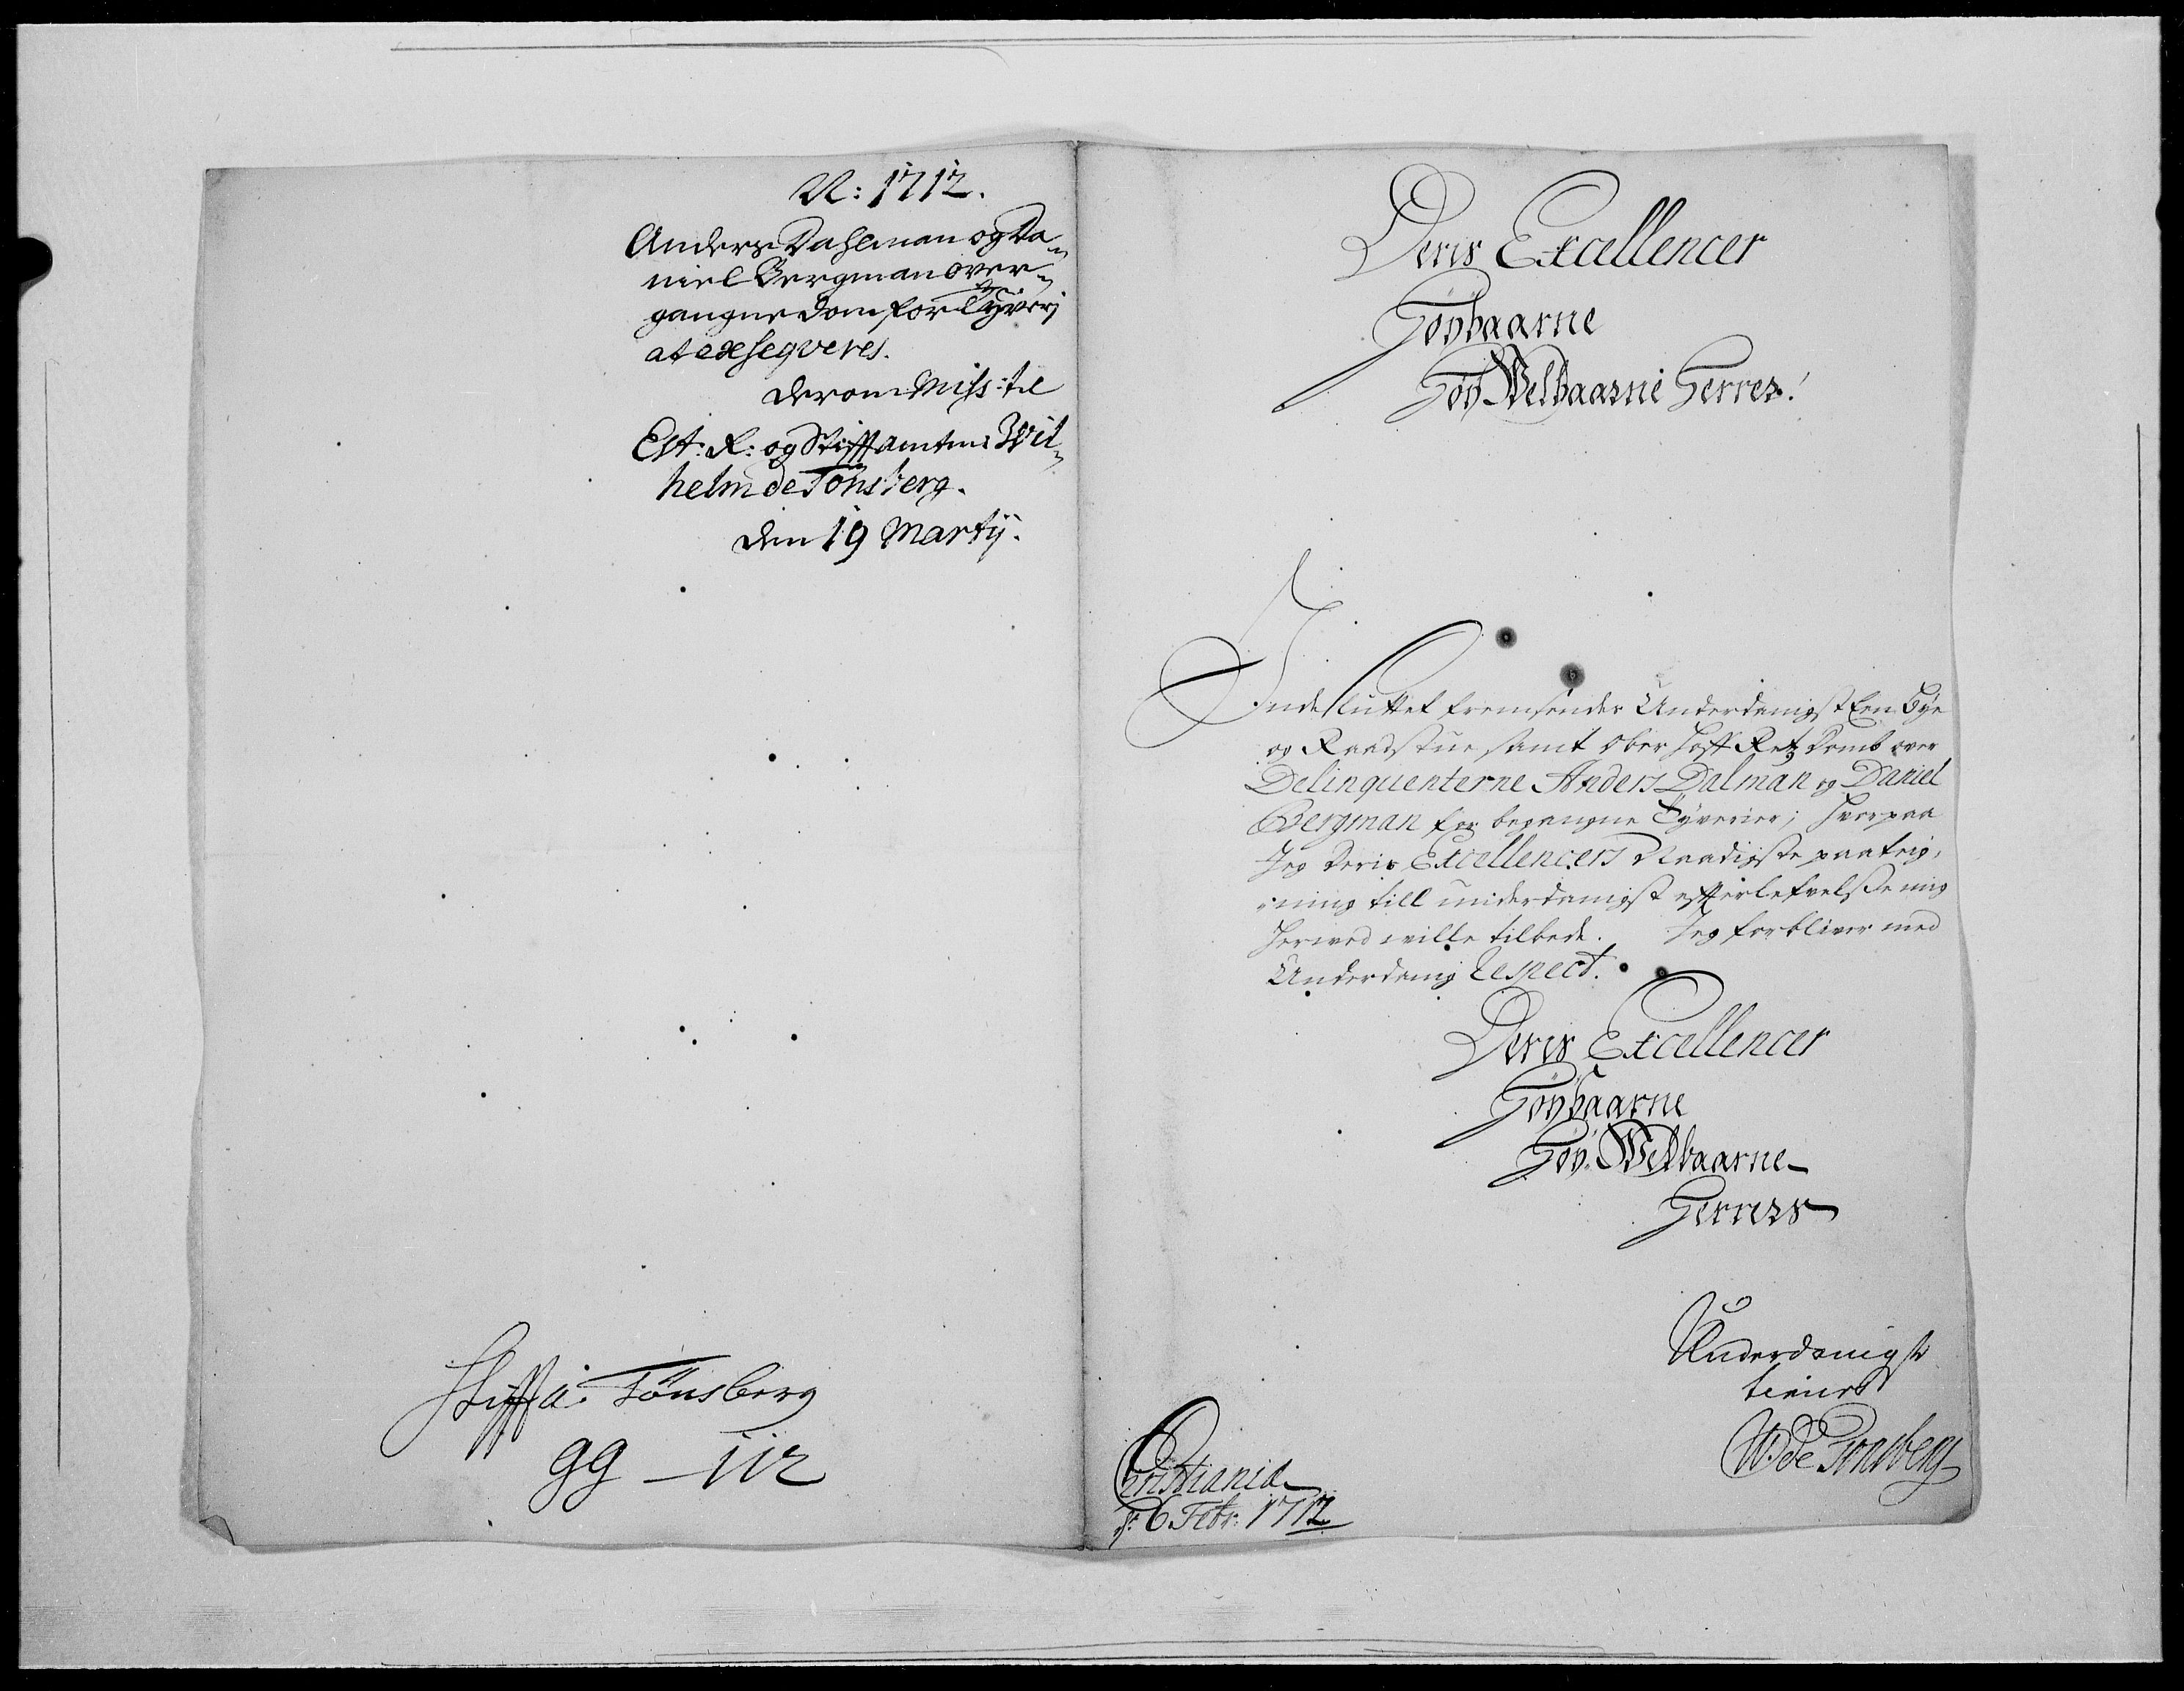 N: 1712.
Anders Dahlman og Da-
niel Bergman over-
gangne Dom for Tyverj
at exseqveres.
derom Miss: til
Est: R: og Stifftamtm: Wil-
helm de Tönsberg.
den 19 Martij.
Stiffta: Tönsberg
99 - 112
Deris Excellencer
Höybaarne
Höy Welbaarne Herrer!
Indesluttet fremsendes Underdanigst Een Bye
og Raadstue samt Ober Hoff Retz Domb over
Delinquenterne Anders Dalman og Daniel
Bergman for begangne Tyverier; Hvorpaa
Jeg Deris Excellencers Naadigste paateig-
ning till underdanigst effterlefvelsse mig
herved wille tilbede. Jeg forbliver med
Underdanig Respect.
Deris Excellencer
Höybaarne
Höy. Welbaarne
Herrers
Underdanigste
tienere
W: de Tonsberg
Christiania
d: 6 Febr: 1712